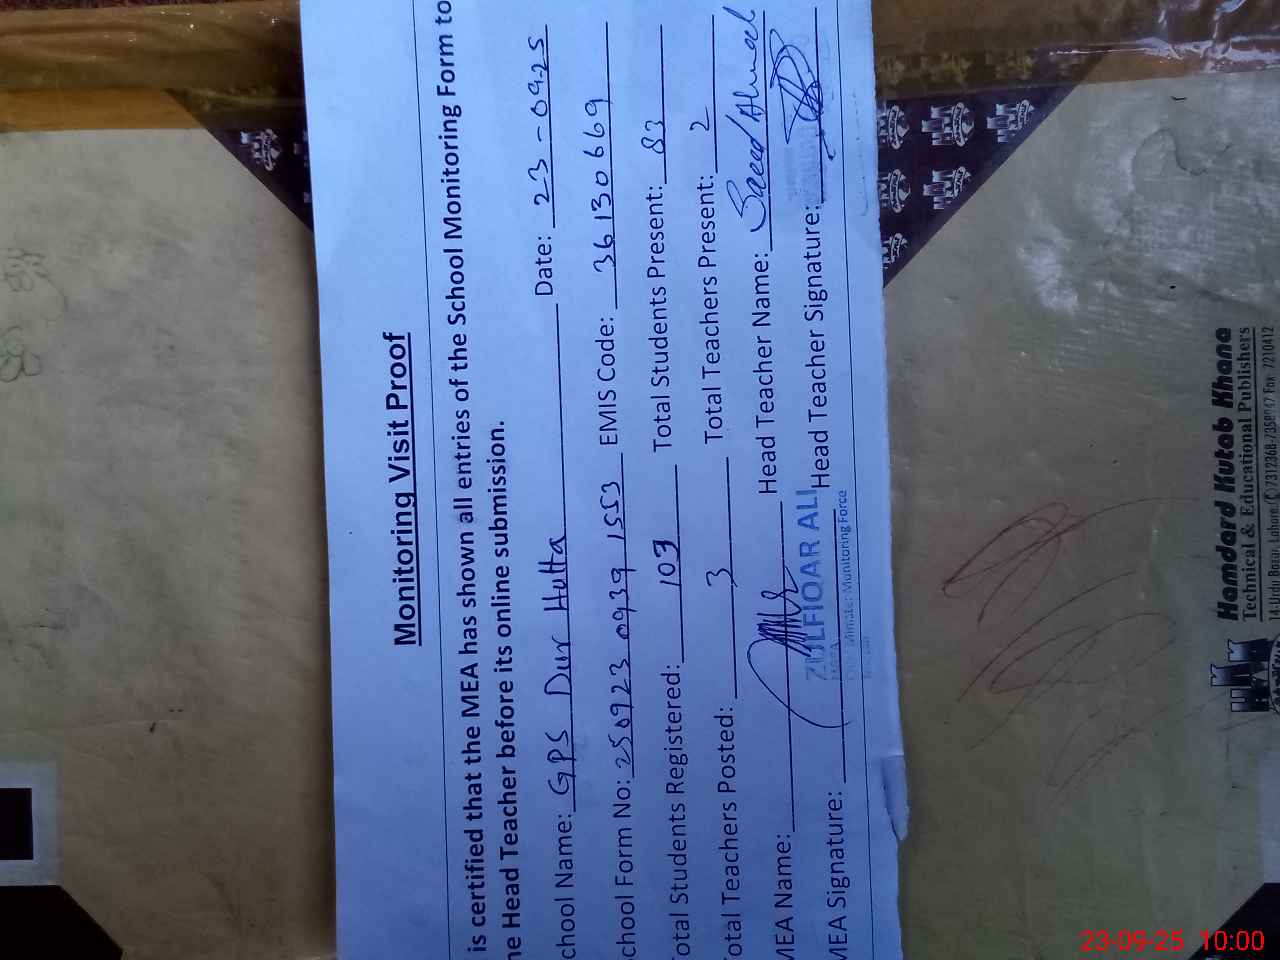 Monitoring Visit Proof
is certified that the MEA has shown all entries of the School Monitoring Form to
he Head Teacher before its online submission.
chool Name: GPS Dur Hutta Date: 23-09-25
chool Form No: 250923 0939 1553 EMIS Code: 36130669
otal Students Registered: 103 Total Students Present: 83
otal Teachers Posted: 3 Total Teachers Present: 2
MEA Name: Head Teacher Name: Saeed Ahmad
MEA Signature: Head Teacher Signature:
ZULFIQAR ALI
MEA
Chief Minister Monitoring Force
Hamdard Kutab Khana
Technical & Educational Publishers
14-Urdu Bazar, Lahore (C) 7312368-7358947 Fax: 7210412
HKK
23-09-25 10:00